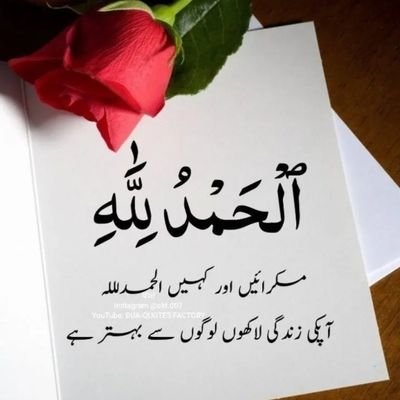 ٱلْحَمْدُ لِلَّٰهِ
مسکرائیں اور کہیں الحمدللہ
Instagram @skf.007
YouTube: DUA-QUOTES FACTORY
آپکی زندگی لاکھوں لوگوں سے بہتر ہے